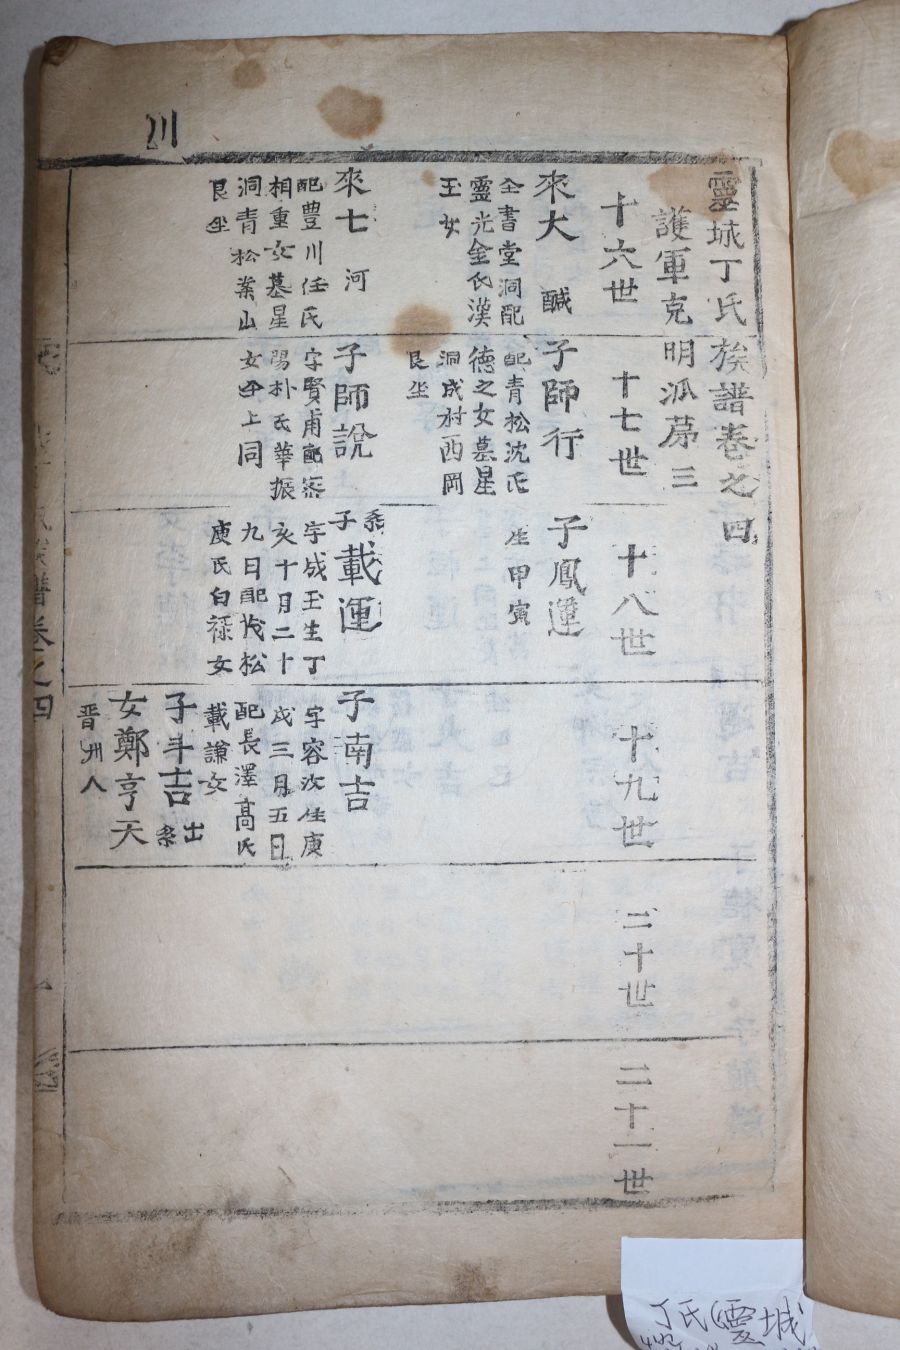 川
靈城丁氏族譜卷之四
護軍克明派苐三
十六世
十七世
十八世
十九世
二十世
二十一世
來大 醎
仝書堂洞配
靈光金氏漢
玉女
來七 河
配豊川任氏
相重女墓星
洞青松業山
艮坐
子師行
配青松沈氏
德之女墓星
洞成村西岡
艮坐
子師說
字賢甫配密
陽朴氏華振
女 上同
子鳳運
生甲寅
系子載運
字成玉生丁
亥十月二十
九日配茂松
庾氏白祿女
子南吉
字容汝生庚
戌三月五日
配長澤高氏
載謙女
子斗吉 出系
女鄭亨天
晋州人
譜卷之四
丁氏(靈城)